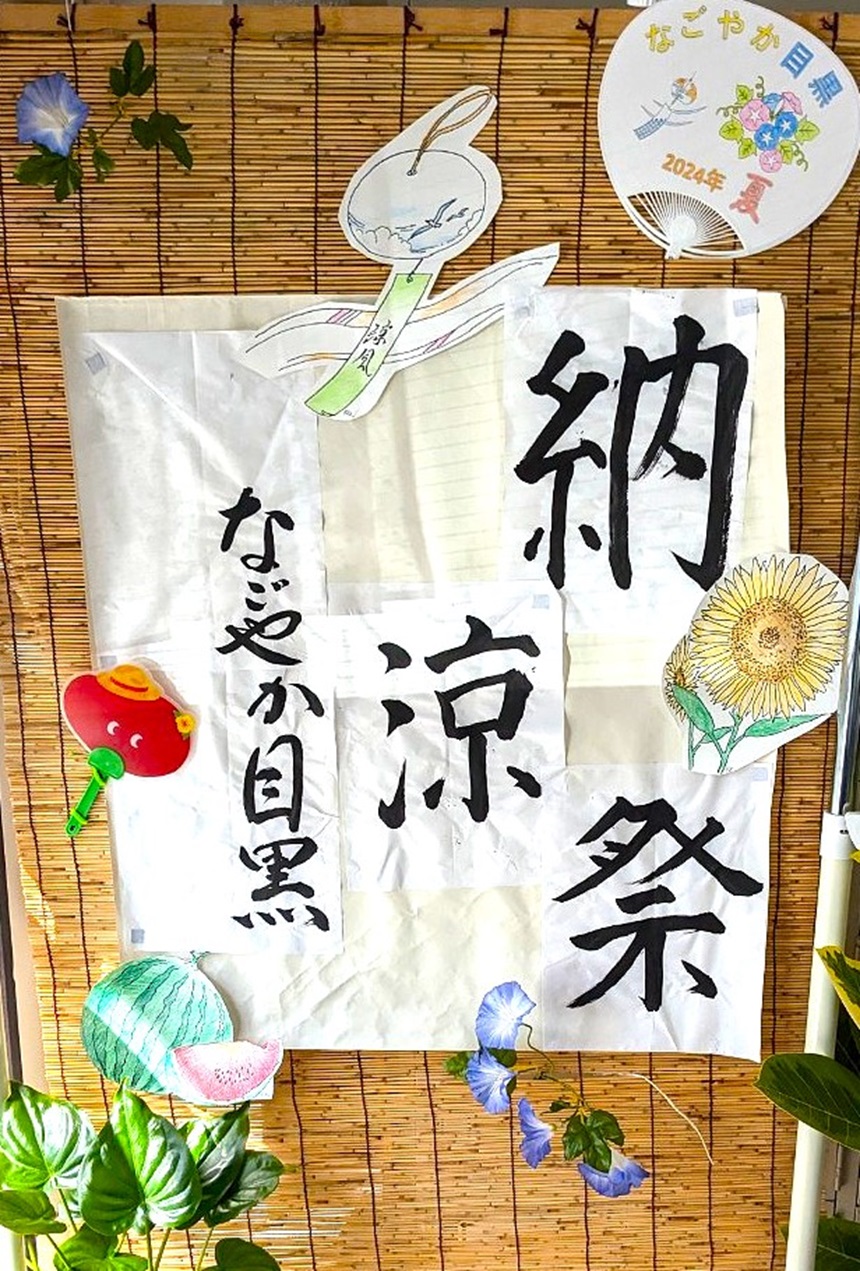 なごやか目黒
2024年 夏
涼風
納涼祭
なごやか目黒